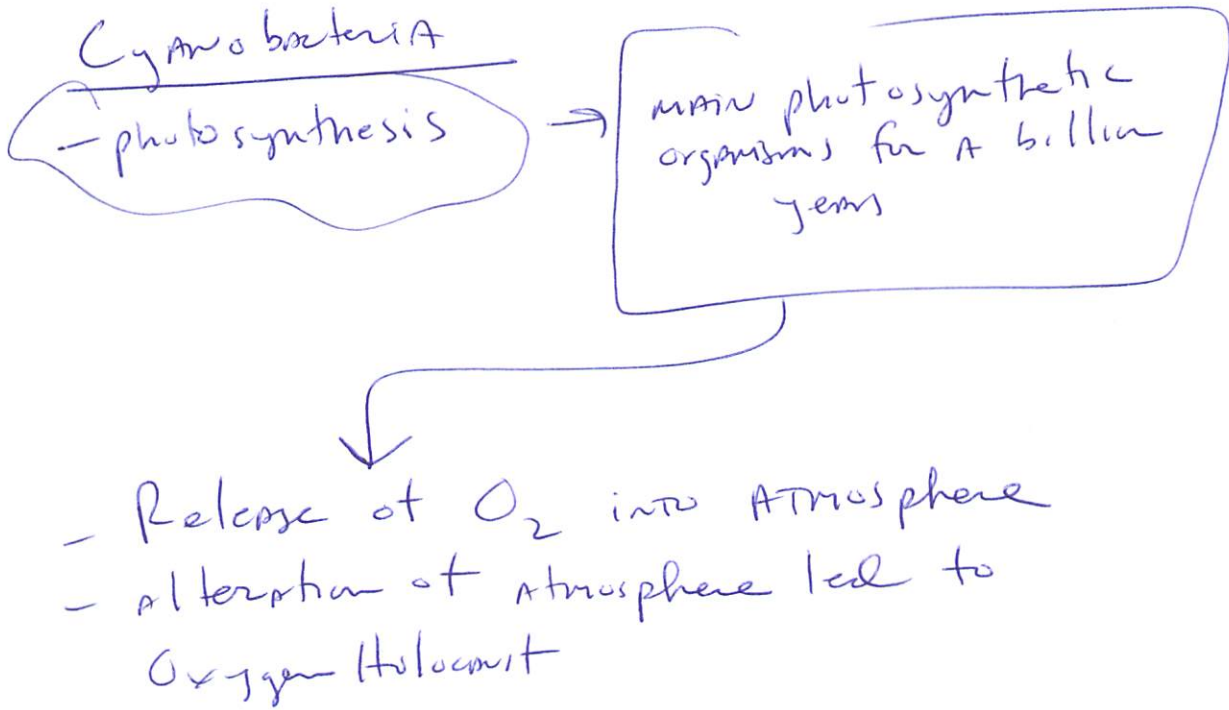 Cyanobacteria
- photosynthesis →
main photosynthetic
organisms for a billion
years
- Release of O₂ into Atmosphere
- alteration of atmosphere led to
Oxygen Holocaust